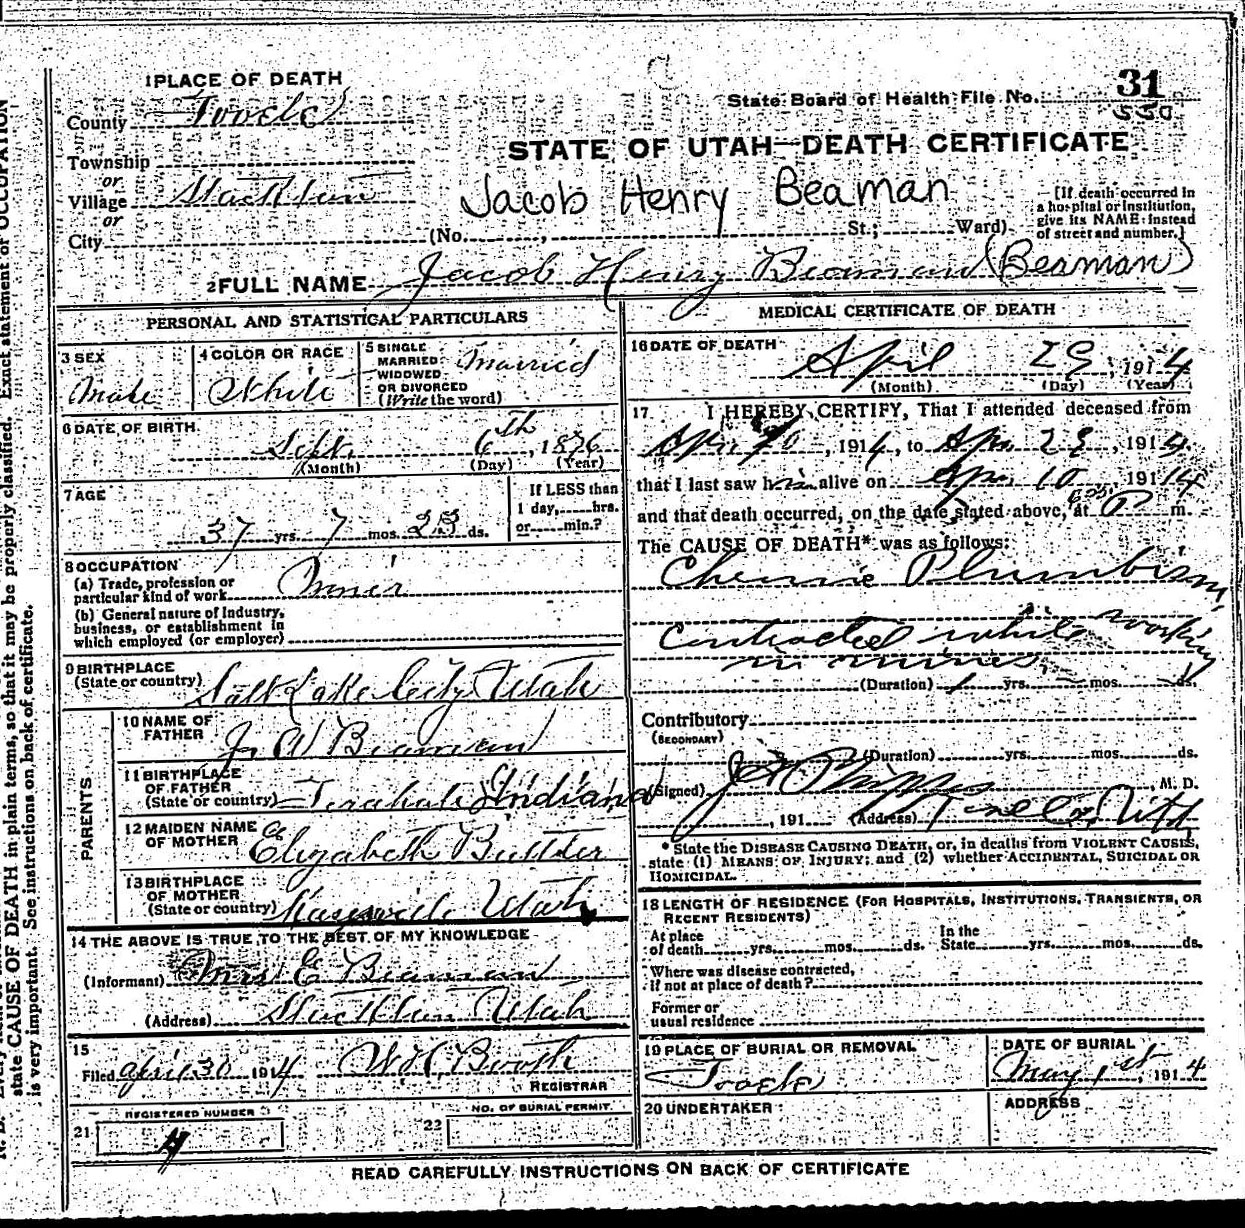 1 PLACE OF DEATH
County Tooele
Township
or
Village Stockton
or
City (No. , St.; Ward)
State Board of Health File No. 31
550
STATE OF UTAH—DEATH CERTIFICATE
Jacob Henry Beaman
(If death occurred in
a hospital or institution,
give its NAME instead
of street and number.)
2 FULL NAME Jacob Henry Beaman (Beaman)
PERSONAL AND STATISTICAL PARTICULARS
3 SEX
Male
4 COLOR OR RACE
White
5 SINGLE
MARRIED
WIDOWED
OR DIVORCED
(Write the word)
Married
6 DATE OF BIRTH
Sept. 6th, 1876
(Month) (Day) (Year)
7 AGE
37 yrs. 7 mos. 23 ds.
If LESS than
1 day, hrs.
or min.?
8 OCCUPATION
(a) Trade, profession or
particular kind of work
(b) General nature of Industry,
business, or establishment in
which employed (or employer)
9 BIRTHPLACE
(State or country) Salt Lake City Utah
PARENTS
10 NAME OF
FATHER
J. W Beaman
11 BIRTHPLACE
OF FATHER
(State or country) Indiana
12 MAIDEN NAME
OF MOTHER
Elizabeth
13 BIRTHPLACE
OF MOTHER
(State or country) Kaysville Utah
14 THE ABOVE IS TRUE TO THE BEST OF MY KNOWLEDGE
(Informant) Mrs E Beaman
(Address) Stockton Utah
15
Filed April 30 1914 W H Booth
REGISTRAR
REGISTERED NUMBER
21 4
NO. OF BURIAL PERMIT
22
MEDICAL CERTIFICATE OF DEATH
16 DATE OF DEATH
April 29, 1914
(Month) (Day) (Year)
17 I HEREBY CERTIFY, That I attended deceased from
, 1914, to Apr. , 1914
that I last saw him alive on Apr. 10 1914
and that death occurred, on the date stated above, at P m.
The CAUSE OF DEATH* was as follows:
Plumbism,
Contracted while working
in mines.
(Duration) 1 yrs. mos. ds.
Contributory
(SECONDARY)
(Duration) yrs. mos. ds.
(Signed) Phipps, M. D.
, 191 (Address)
* State the DISEASE CAUSING DEATH, or, in deaths from VIOLENT CAUSES,
state (1) MEANS OF INJURY; and (2) whether ACCIDENTAL, SUICIDAL OR
HOMICIDAL.
18 LENGTH OF RESIDENCE (FOR HOSPITALS, INSTITUTIONS, TRANSIENTS, OR
RECENT RESIDENTS)
At place
of death yrs. mos. ds.
In the
State yrs. mos. ds.
Where was disease contracted,
if not at place of death?
Former or
usual residence
19 PLACE OF BURIAL OR REMOVAL
Tooele
DATE OF BURIAL
May 1st, 1914
20 UNDERTAKER
ADDRESS
READ CAREFULLY INSTRUCTIONS ON BACK OF CERTIFICATE
state CAUSE OF DEATH in plain terms, so that it may be properly classified. Exact statement of OCCUPATION
is very important. See instructions on back of certificate.